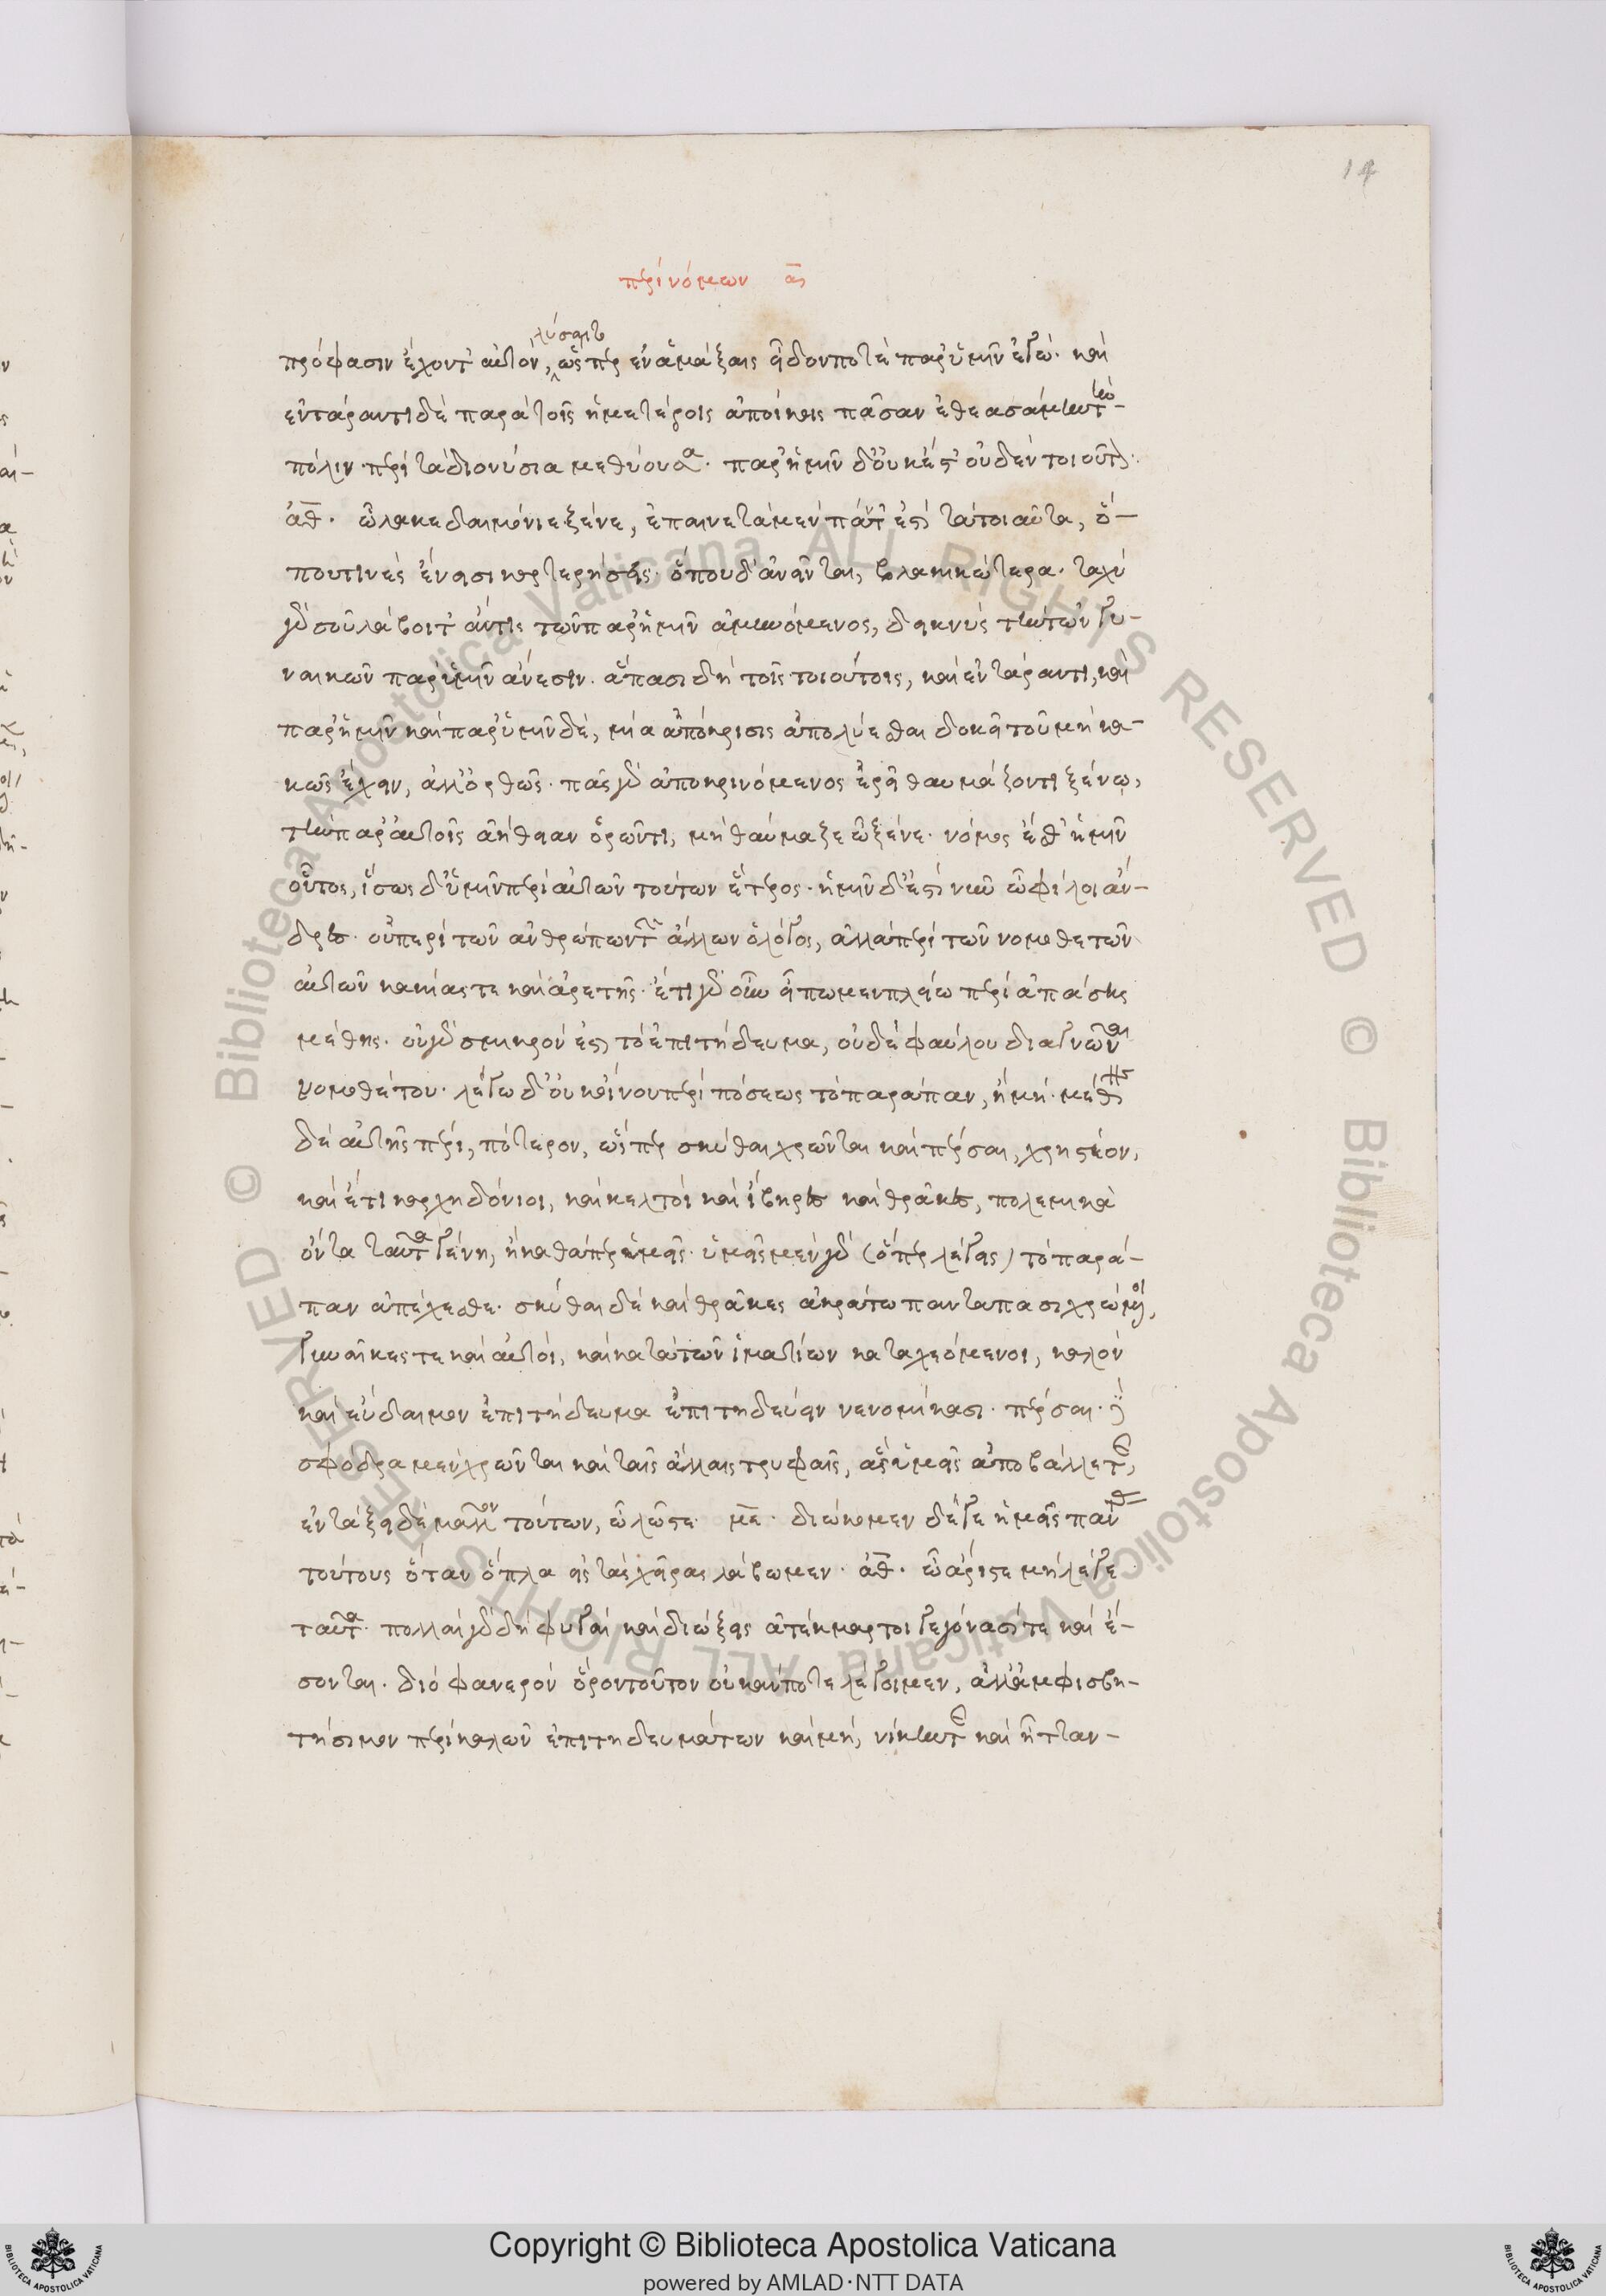 14
περὶ νόμων α
πρόφασιν ἔχοντ' αὐτὸν, λύσαιτο ὥσπερ ἐν ἁμάξαις εἶδον ποτὲ παρ' ὑμῖν ἐγώ· καὶ
ἐν τάραντι δὲ παρὰ τοῖς ἡμετέροις ἀποίκοις πᾶσαν ἐθεασάμην τὴν
πόλιν περὶ τὰ διονύσια μεθύουσαν· παρ' ἡμῖν δ' οὐκ ἔστ' οὐδὲν τοιοῦτον·
ἀθ. ὦ λακεδαιμόνιε ξένε, ἐπαινετὰ μὲν πάντ' ἐστὶ τὰ τοιαῦτα, ὅ-
που τινὲς ἔνεισι καρτερήσεις· ὅπου δ' ἀνεῖνται, βλακικώτερα· ταχὺ
γὰρ σοῦ λάβοιτ' ἄν τις τῶν παρ' ἡμῖν ἀμυνόμενος, δεικνὺς τὴν τῶν γυ-
ναικῶν παρ' ὑμῖν ἄνεσιν. ἅπασι δὴ τοῖς τοιούτοις, καὶ ἐν τάραντι, καὶ
παρ' ἡμῖν καὶ παρ' ὑμῖν δὲ, μία ἀπόκρισις ἀπολύεσθαι δοκεῖ τοῦ μὴ κα-
κῶς ἔχειν, ἀλλ' ὀρθῶς· πᾶς γὰρ ἀποκρινόμενος ἐρεῖ θαυμάζοντι ξένῳ,
τὴν παρ' αὐτοῖς ἀήθειαν ὁρῶντι, μὴ θαύμαζε ὦ ξένε· νόμος ἔσθ' ἡμῖν
οὗτος, ἴσως δ' ὑμῖν περὶ αὐτῶν τούτων ἕτερος· ἡμῖν δ' ἐστὶ νῦν ὦ φίλοι ἄν-
δρες· οὐ περὶ τῶν ἀνθρώπων τῶν ἄλλων ὁ λόγος, ἀλλὰ περὶ τῶν νομοθετῶν
αὐτῶν κακίας τε καὶ ἀρετῆς· ἔτι γὰρ οὖν εἴπωμεν πλείω περὶ ἁπάσης
μέθης· οὐ γὰρ σμικρόν ἐστι τὸ ἐπιτήδευμα, οὐδὲ φαύλου διαγνῶναι
νομοθέτου· λέγω δ' οὐκ οἴνου περὶ πόσεως τὸ παράπαν, ἢ μή· μέθης
δὲ αὐτῆς πέρι, πότερον, ὥσπερ σκύθαι χρῶνται καὶ πέρσαι, χρηστέον,
καὶ ἔτι καρχηδόνιοι, καὶ κελτοὶ καὶ ἴβηρες καὶ θρᾷκες, πολεμικὰ
ὄντα ταῦτα γένη, ἢ καθάπερ ὑμεῖς· ὑμεῖς μὲν γὰρ (ὅπερ λέγεις) τὸ παρά-
παν ἀπέχεσθε· σκύθαι δὲ καὶ θρᾷκες ἀκράτῳ παντάπασι χρώμενοι,
γυναῖκες τε καὶ αὐτοὶ, καὶ κατὰ τῶν ἱματίων καταχεόμενοι, καλὸν
καὶ εὔδαιμον ἐπιτήδευμα ἐπιτηδεύειν νενομίκασι· πέρσαι δὲ
σφόδρα μὲν χρῶνται καὶ ταῖς ἄλλαις τρυφαῖς, ἃς ὑμεῖς ἀποβάλλετε,
ἐν τάξει δὲ μᾶλλον τούτων, ὦ λῷστε. με. διώκομεν δέ γε ἡμεῖς πάντας
τούτους ὅταν ὅπλα εἰς τὰς χεῖρας λάβωμεν. ἀθ. ὦ ἄριστε μὴ λέγε
ταῦτα· πολλαὶ γὰρ δὴ φυγαὶ καὶ διώξεις ἀτέκμαρτοι γεγόνασί τε καὶ ἔ-
σονται. διὸ φανερὸν ὅρον τοῦτον οὐκ ἄν ποτε λέγοιμεν, ἀλλὰ ἀμφισβη-
τήσιμον περὶ καλῶν ἐπιτηδευμάτων καὶ μὴ, νίκην τε καὶ ἧτταν-
© Biblioteca Apostolica Vaticana ALL RIGHTS RESERVED
© Biblioteca Apostolica Vaticana ALL RIGHTS RESERVED
Copyright © Biblioteca Apostolica Vaticana
powered by AMLAD·NTT DATA
BIBLIOTECA APOSTOLICA VATICANA
BIBLIOTECA APOSTOLICA VATICANA